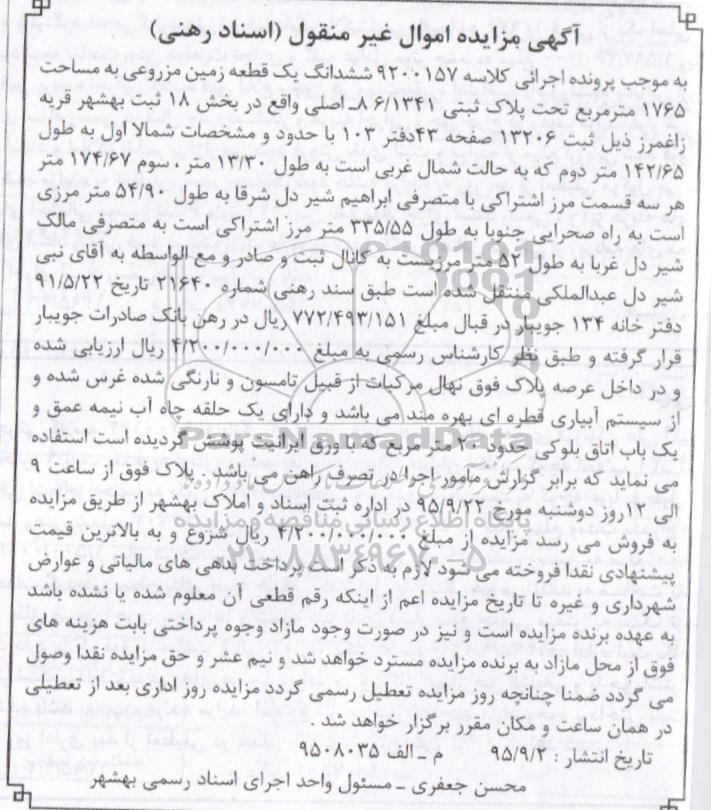 آگهی مزایده اموال غیر منقول (اسناد رهنی)
به موجب پرونده اجرائی کلاسه ۹۲۰۰۱۵۷ ششدانگ یک قطعه زمین مزروعی به مساحت
۱۷۶۵ مترمربع تحت پلاک ثبتی ۸ـ۶/۱۳۴۱ اصلی واقع در بخش ۱۸ ثبت بهشهر قریه
زاغمرز ذیل ثبت ۱۳۲۰۶ صفحه ۴۳دفتر ۱۰۳ با حدود و مشخصات شمالا اول به طول
۱۴۲/۶۵ متر دوم که به حالت شمال غربی است به طول ۱۳/۳۰ متر .سوم ۱۷۴/۶۷ متر
هر سه قسمت مرز اشتراکی با متصرفی ابراهیم شیر دل شرقا به طول ۵۴/۹۰ متر مرزی
است به راه صحرایی جنوبا به طول ۳۳۵/۵۵ متر مرز اشتراکی است به متصرفی مالک
شیر دل غربا به طول ۵۲ متر مرزیست به کانال ثبت و صادر و مع الواسطه به آقای نبی
شیر دل عبدالملکی منتقل شده است طبق سند رهنی شماره ۲۱۶۴۰ تاریخ ۹۱/۵/۲۲
دفتر خانه ۱۳۴ جویبار در قبال مبلغ ۷۷۲/۴۹۳/۱۵۱ ریال در رهن بانک صادرات جویبار
قرار گرفته و طبق نظر کارشناس رسمی به مبلغ ۴/۲۰۰/۰۰۰/۰۰۰ ریال ارزیابی شده
و در داخل عرصه پلاک فوق نهال مرکبات از قبیل تامسون و نارنگی شده غرس شده و
از سیستم آبیاری قطره ای بهره مند می باشد و دارای یک حلقه چاه آب نیمه عمق و
یک باب اتاق بلوکی حدود متر مربع که با ورق ایرانیت پوشش گردیده است استفاده
می نماید که برابر گزارش مامور اجرا در تصرف راهن می باشد . پلاک فوق از ساعت ۹
الی ۱۲روز دوشنبه مورخ ۹۵/۹/۲۲ در اداره ثبت اسناد و املاک بهشهر از طریق مزایده
به فروش می رسد مزایده از مبلغ ۴/۲۰۰/۰۰۰/۰۰۰ ریال شروع و به بالاترین قیمت
پیشنهادی نقدا فروخته می شود. لازم به ذکر است پرداخت بدهی های مالیاتی و عوارض
شهرداری و غیره تا تاریخ مزایده اعم از اینکه رقم قطعی آن معلوم شده یا نشده باشد
به عهده برنده مزایده است و نیز در صورت وجود مازاد وجوه پرداختی بابت هزینه های
فوق از محل مازاد به برنده مزایده مسترد خواهد شد و نیم عشر و حق مزایده نقدا وصول
می گردد ضمنا چنانچه روز مزایده تعطیل رسمی گردد مزایده روز اداری بعد از تعطیلی
در همان ساعت و مکان مقرر برگزار خواهد شد .
تاریخ انتشار : ۹۵/۹/۲ م ـ الف ۹۵۰۸۰۳۵
محسن جعفری ـ مسئول واحد اجرای اسناد رسمی بهشهر
ParsNamadData
پایگاه اطلاع رسانی مناقصه و مزایده
۰۲۱-۸۸۳۴۹۶۷۰-۵